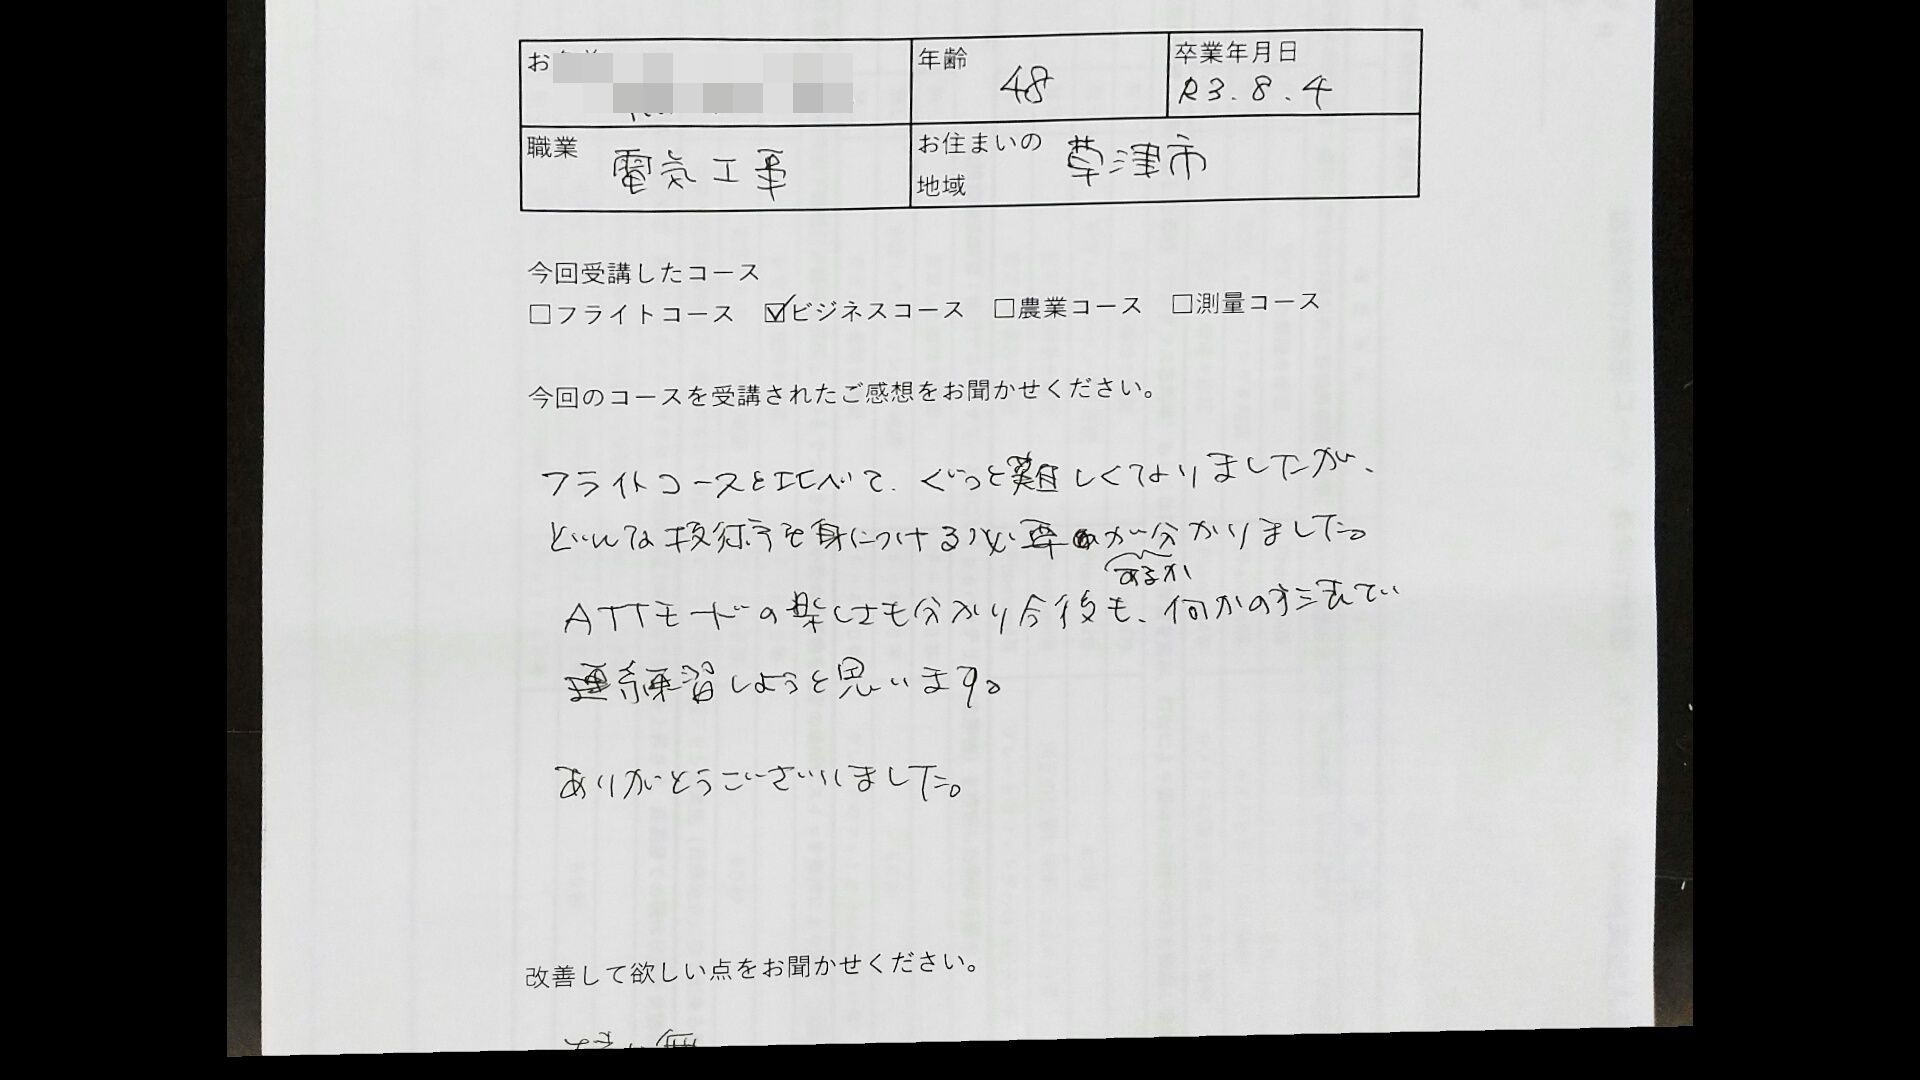 お
年齢 48
卒業年月日 R3.8.4
職業 電気工事
お住まいの
地域 草津市
今回受講したコース
□フライトコース ☑ビジネスコース □農業コース □測量コース
今回のコースを受講されたご感想をお聞かせください。
フライトコースと比べて、ぐっと難しくなりましたが、
どんな技術を身につける必要があるか分かりました。
ATTモードの楽しさも分かり今後も、何かの方法で
練習しようと思います。
ありがとうございました。
改善して欲しい点をお聞かせください。